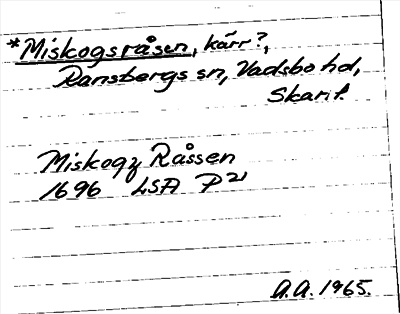 *Miskogsråsen, kärr?,
Ransbergs sn, Vadsbo hd,
Skar.f.
Miskogz Råssen
1696 LSA P21
A.A. 1965.